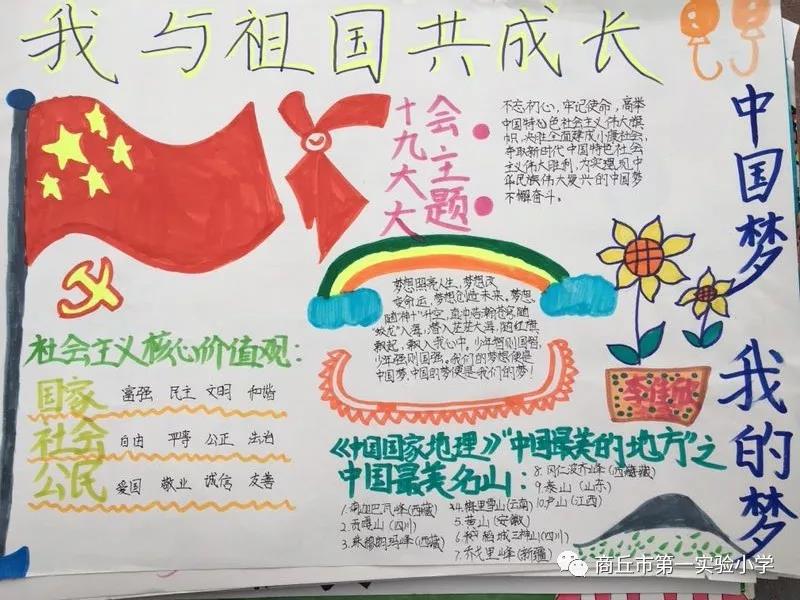 我与祖国共成长
十九大大
会主题
不忘初心,牢记使命,高举
中国特色社会主义伟大旗
帜,决胜全面建成小康社会,
夺取新时代中国特色社会
主义伟大胜利,为实现中
华民族伟大复兴的中国梦
不懈奋斗。
中国梦
我的梦
梦想照亮人生,梦想改
变命运,梦想创造未来。梦想
随“神十”升空,直冲浩瀚苍穹,随
“蛟龙”入海,潜入茫茫大海,随红旗
飘起,飘入我心中,少年智则国智,
少年强则国强。我们的梦想便是
中国梦,中国的梦便是我们的梦!
社会主义核心价值观:
国家 富强 民主 文明 和谐
社会 自由 平等 公正 法治
公民 爱国 敬业 诚信 友善
李佳欣
《中国国家地理》“中国最美的地方”之
中国最美名山:
1.南迦巴瓦峰(西藏)
2.贡嘎山(四川)
3.珠穆朗玛峰(西藏)
4.梅里雪山(云南)
5.黄山(安徽)
6.稻城三神山(四川)
7.乔戈里峰(新疆)
8.冈仁波齐峰(西藏)
9.泰山(山东)
10.庐山(江西)
商丘市第一实验小学